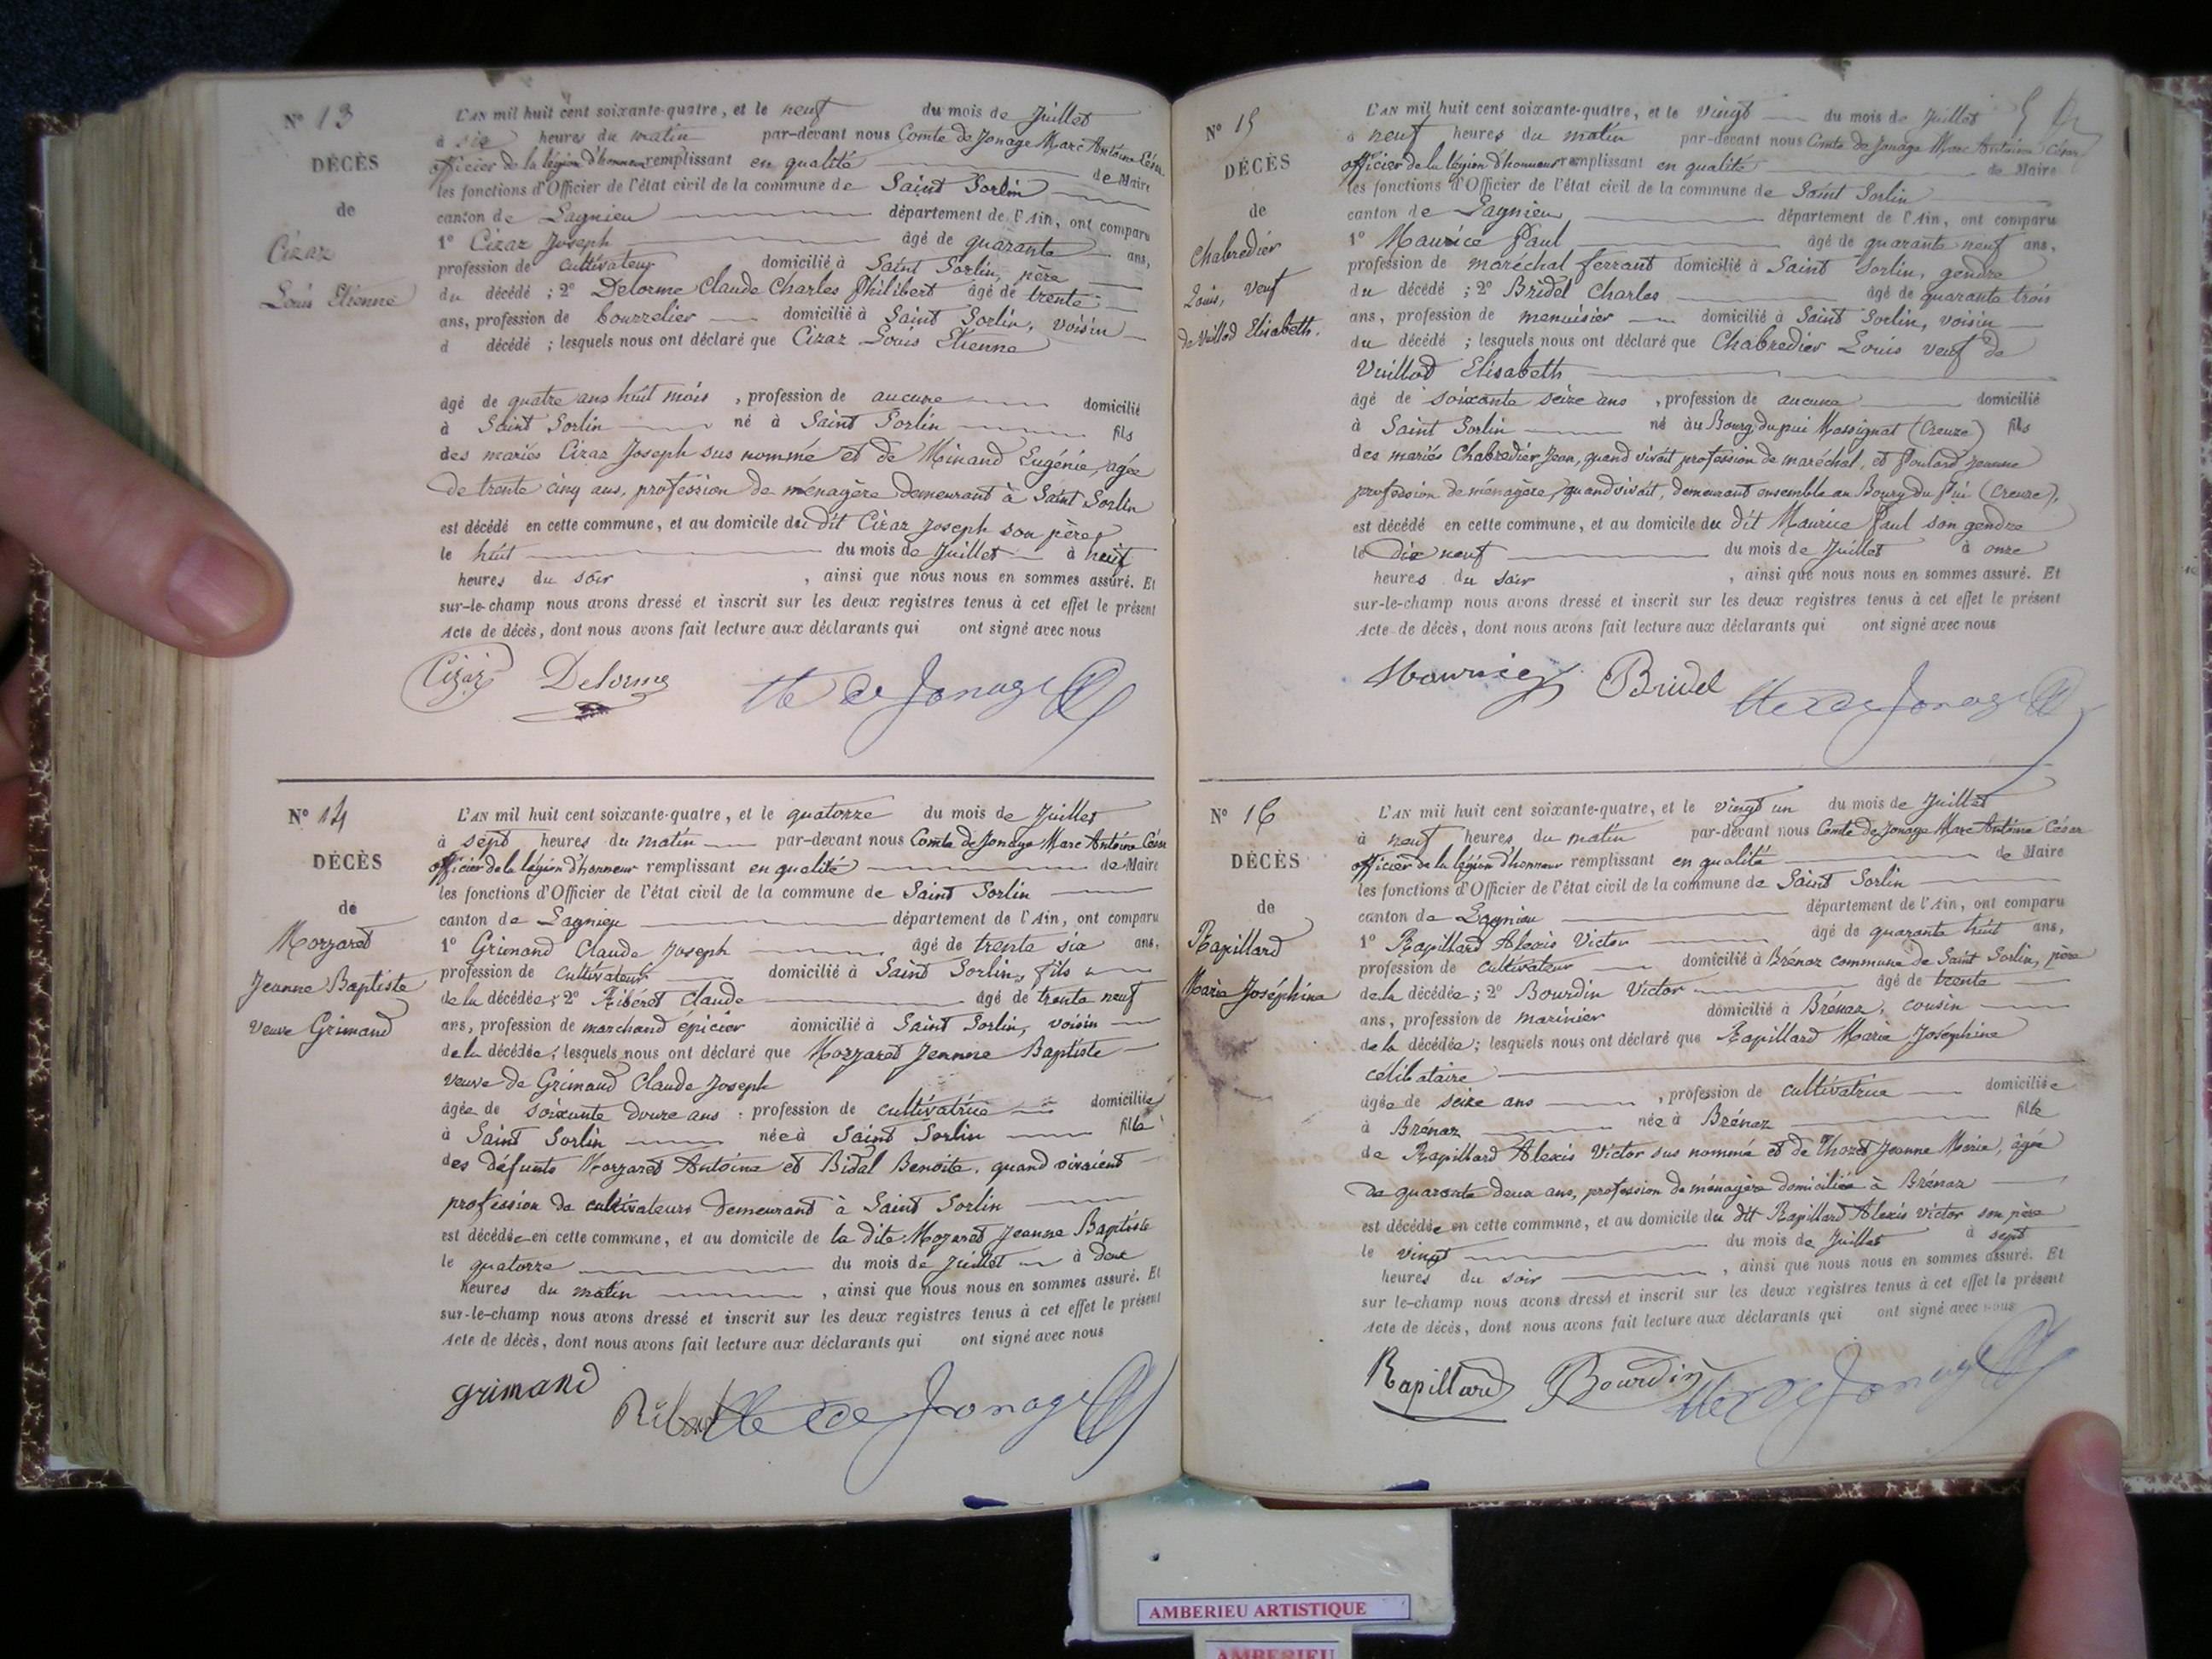 N° 13
DÉCÈS
de
Cizar
Louis Etienne
L'AN mil huit cent soixante-quatre, et le neuf du mois de Juillet
à six heures du matin par-devant nous Comte de Jonage Marc Antoine César
officier de la légion d'honneur remplissant en qualité de Maire
les fonctions d'Officier de l'état civil de la commune de Saint Sorlin
canton de Lagnieu département de l'Ain, ont comparu
1° Cizar Joseph âgé de quarante ans,
profession de cultivateur domicilié à Saint Sorlin, père
du décédé ; 2° Delorme Claude Charles Philibert âgé de trente
ans, profession de bourrelier domicilié à Saint Sorlin, voisin
d décédé ; lesquels nous ont déclaré que Cizar Louis Etienne
âgé de quatre ans huit mois , profession de aucune domicilié
à Saint Sorlin né à Saint Sorlin fils
des mariés Cizar Joseph sus nommé et de Minand Eugénie, agée
de trente cinq ans, profession de ménagère demeurant à Saint Sorlin
est décédé en cette commune, et au domicile du dit Cizar Joseph son père
le huit du mois de Juillet à neuf
heures du soir , ainsi que nous nous en sommes assuré. Et
sur-le-champ nous avons dressé et inscrit sur les deux registres tenus à cet effet le présent
Acte de décès, dont nous avons fait lecture aux déclarants qui ont signé avec nous
Cizar Delorme Cte de Jonage
N° 14
DÉCÈS
de
Morzaret
Jeanne Baptiste
veuve Grimand
L'AN mil huit cent soixante-quatre, et le quatorze du mois de Juillet
à sept heures du matin par-devant nous Comte de Jonage Marc Antoine César
officier de la légion d'honneur remplissant en qualité de Maire
les fonctions d'Officier de l'état civil de la commune de Saint Sorlin
canton de Lagnieu département de l'Ain, ont comparu
1° Grimand Claude Joseph âgé de trente six ans,
profession de cultivateur domicilié à Saint Sorlin, fils
de la décédée ; 2° Ribéret Claude âgé de trente neuf
ans, profession de marchand épicier domicilié à Saint Sorlin, voisin
de la décédée ; lesquels nous ont déclaré que Morzaret Jeanne Baptiste
veuve de Grimand Claude Joseph
âgée de soixante douze ans , profession de cultivatrice domiciliée
à Saint Sorlin née à Saint Sorlin fille
des défunts Morzaret Antoine et Bidal Benoite, quand vivaient
profession de cultivateurs demeurant à Saint Sorlin
est décédée en cette commune, et au domicile de la dite Mozaret Jeanne Baptiste
le quatorze du mois de Juillet à deux
heures du matin , ainsi que nous nous en sommes assuré. Et
sur-le-champ nous avons dressé et inscrit sur les deux registres tenus à cet effet le présent
Acte de décès, dont nous avons fait lecture aux déclarants qui ont signé avec nous
grimand Cte de Jonage
N° 15
DÉCÈS
de
Chabredier
Louis, veuf
de Vuillod Elisabeth.
L'AN mil huit cent soixante-quatre, et le vingt du mois de Juillet
à neuf heures du matin par-devant nous Comte de Jonage Marc Antoine César
officier de la légion d'honneur remplissant en qualité de Maire
les fonctions d'Officier de l'état civil de la commune de Saint Sorlin
canton de Lagnieu département de l'Ain, ont comparu
1° Maurice Paul âgé de quarante neuf ans,
profession de maréchal ferrant domicilié à Saint Sorlin, gendre
du décédé ; 2° Bridel Charles âgé de quarante trois
ans, profession de menuisier domicilié à Saint Sorlin, voisin
du décédé ; lesquels nous ont déclaré que Chabredier Louis veuf de
Vuillod Elisabeth
âgé de soixante seize ans , profession de aucune domicilié
à Saint Sorlin né au Bourg du pui Massignat (Creuze) fils
des mariés Chabredier Jean, quand vivait profession de maréchal, et Poulard Jeanne
profession de ménagère, quand vivait, demeurant ensemble au Bourg du Pui (Creuze),
est décédé en cette commune, et au domicile du dit Maurice Paul son gendre
le dix neuf du mois de Juillet à onze
heures du soir , ainsi que nous nous en sommes assuré. Et
sur-le-champ nous avons dressé et inscrit sur les deux registres tenus à cet effet le présent
Acte de décès, dont nous avons fait lecture aux déclarants qui ont signé avec nous
Maurice Bridel Cte de Jonage
N° 16
DÉCÈS
de
Rapillard
Marie Joséphine
L'AN mil huit cent soixante-quatre, et le vingt un du mois de Juillet
à neuf heures du matin par-devant nous Comte de Jonage Marc Antoine César
officier de la légion d'honneur remplissant en qualité de Maire
les fonctions d'Officier de l'état civil de la commune de Saint Sorlin
canton de Lagnieu département de l'Ain, ont comparu
1° Rapillard Alexis Victor âgé de quarante huit ans,
profession de cultivateur domicilié à Brénaz commune de Saint Sorlin, père
de la décédée ; 2° Bourdin Victor âgé de trente
ans, profession de marinier domicilié à Brénaz, cousin
de la décédée ; lesquels nous ont déclaré que Rapillard Marie Joséphine
célibataire
âgée de seize ans , profession de cultivatrice domiciliée
à Brénaz née à Brénaz fille
de Rapillard Alexis Victor sus nommé et de Thozet Jeanne Marie, âgée
de quarante deux ans, profession de ménagère domiciliée à Brénaz
est décédée en cette commune, et au domicile du dit Rapillard Alexis Victor son père
le vingt du mois de Juillet à sept
heures du soir , ainsi que nous nous en sommes assuré. Et
sur le-champ nous avons dressé et inscrit sur les deux registres tenus à cet effet le présent
Acte de décès, dont nous avons fait lecture aux déclarants qui ont signé avec nous
Rapillard Bourdin Cte de Jonage
AMBERIEU ARTISTIQUE
AMBERIEU